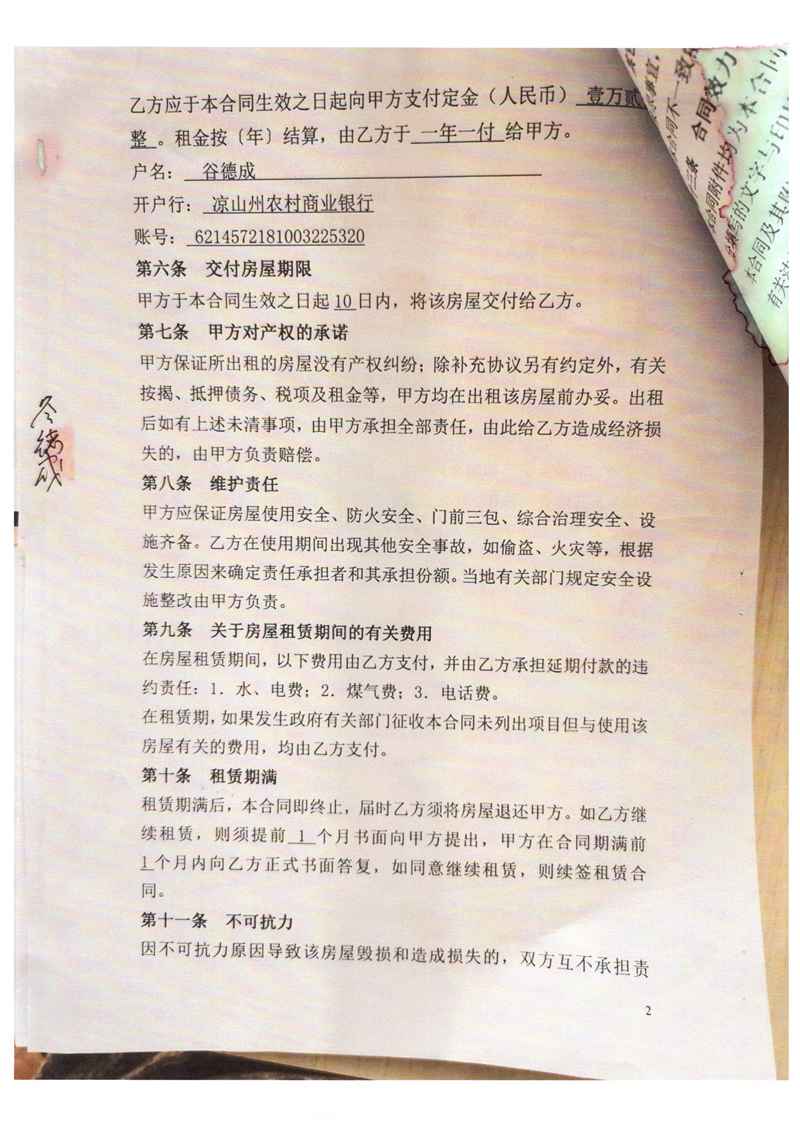 乙方应于本合同生效之日起向甲方支付定金（人民币）壹万贰
整 。租金按〔年〕结算，由乙方于 一年一付 给甲方。
户名： 谷德成
开户行： 凉山州农村商业银行
账号： 6214572181003225320
第六条 交付房屋期限
甲方于本合同生效之日起 10 日内，将该房屋交付给乙方。
第七条 甲方对产权的承诺
甲方保证所出租的房屋没有产权纠纷；除补充协议另有约定外，有关
按揭、抵押债务、税项及租金等，甲方均在出租该房屋前办妥。出租
后如有上述未清事项，由甲方承担全部责任，由此给乙方造成经济损
失的，由甲方负责赔偿。
第八条 维护责任
甲方应保证房屋使用安全、防火安全、门前三包、综合治理安全、设
施齐备。乙方在使用期间出现其他安全事故，如偷盗、火灾等，根据
发生原因来确定责任承担者和其承担份额。当地有关部门规定安全设
施整改由甲方负责。
第九条 关于房屋租赁期间的有关费用
在房屋租赁期间，以下费用由乙方支付，并由乙方承担延期付款的违
约责任：1．水、电费；2．煤气费；3．电话费。
在租赁期，如果发生政府有关部门征收本合同未列出项目但与使用该
房屋有关的费用，均由乙方支付。
第十条 租赁期满
租赁期满后，本合同即终止，届时乙方须将房屋退还甲方。如乙方继
续租赁，则须提前 1 个月书面向甲方提出，甲方在合同期满前
1 个月内向乙方正式书面答复，如同意继续租赁，则续签租赁合
同。
第十一条 不可抗力
因不可抗力原因导致该房屋毁损和造成损失的，双方互不承担责
2
谷德成
合同不一致
三条 合同效力
合同附件均为本合同
填写的文字与印
本合同及其附
有关